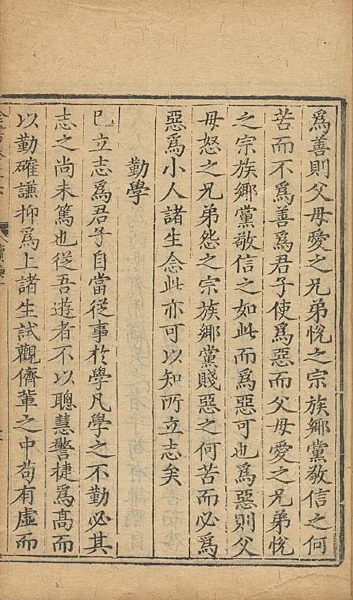 爲善則父母愛之兄弟悅之宗族鄉黨敬信之何
苦而不爲善爲君子使爲惡而父母愛之兄弟悅
之宗族鄉黨敬信之如此而爲惡可也爲惡則父
母怒之兄弟怨之宗族鄉黨賤惡之何苦而必爲
惡爲小人諸生念此亦可以知所立志矣
勤學
已立志爲君子自當從事於學凡學之不勤必其
志之尚未篤也從吾遊者不以聰慧警捷爲高而
以勤確謙抑爲上諸生試觀儕輩之中苟有虛而